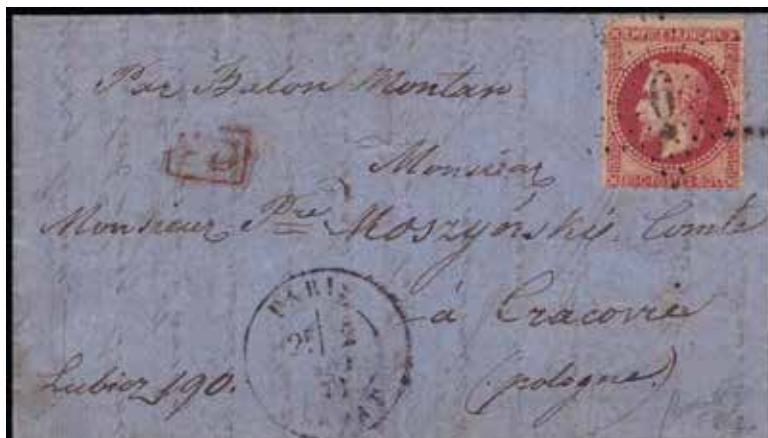 Par Balon Montan
6
PD
Monsieur
Monsieur Pre Moszyński Comte
à Cracovie
PARIS
Lubicz 190.
(pologne)